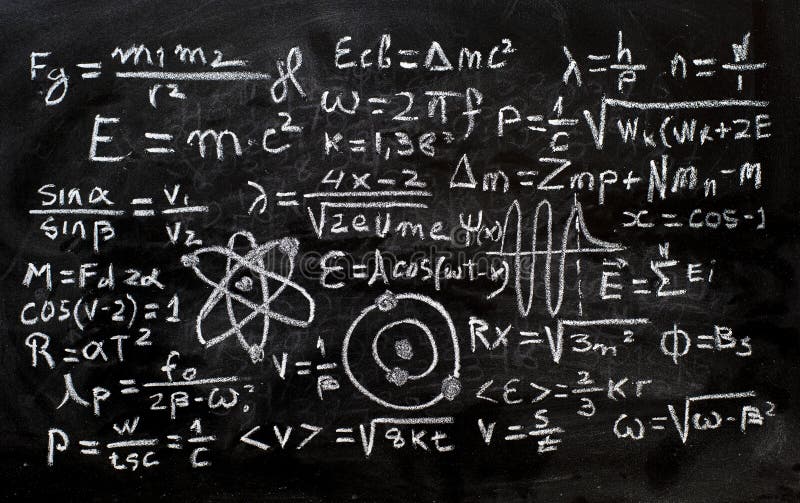 Fg = m1m2/r2
Ecb = Δmc²
λ = h/p
E = m·c²
ω = 2πf
K = 1,38
P = 1/c √Wk(Wk+2E
sinα/sinβ = v1/v2
λ = 4x-2/√2eUme
Δm = Zmp + Nmn - M
Ψ(x)
x = cos-1
M = Fd2α
ε = Acos(ωt-x)
E⃗ = Σ Ei
cos(v-2) = 1
R = αT²
RX = √3m²
Φ = Bs
Ap = fo/2β-ω²
v = 1/β
<ε> = 2/3 Kr
p = w/tsc = 1/c
<v> = √8kt
v = s/t
ω = √ω-β²